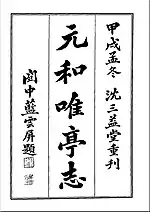 甲戌孟冬 沈三益堂重刊
元和唯亭志
閩中藍雲屏題